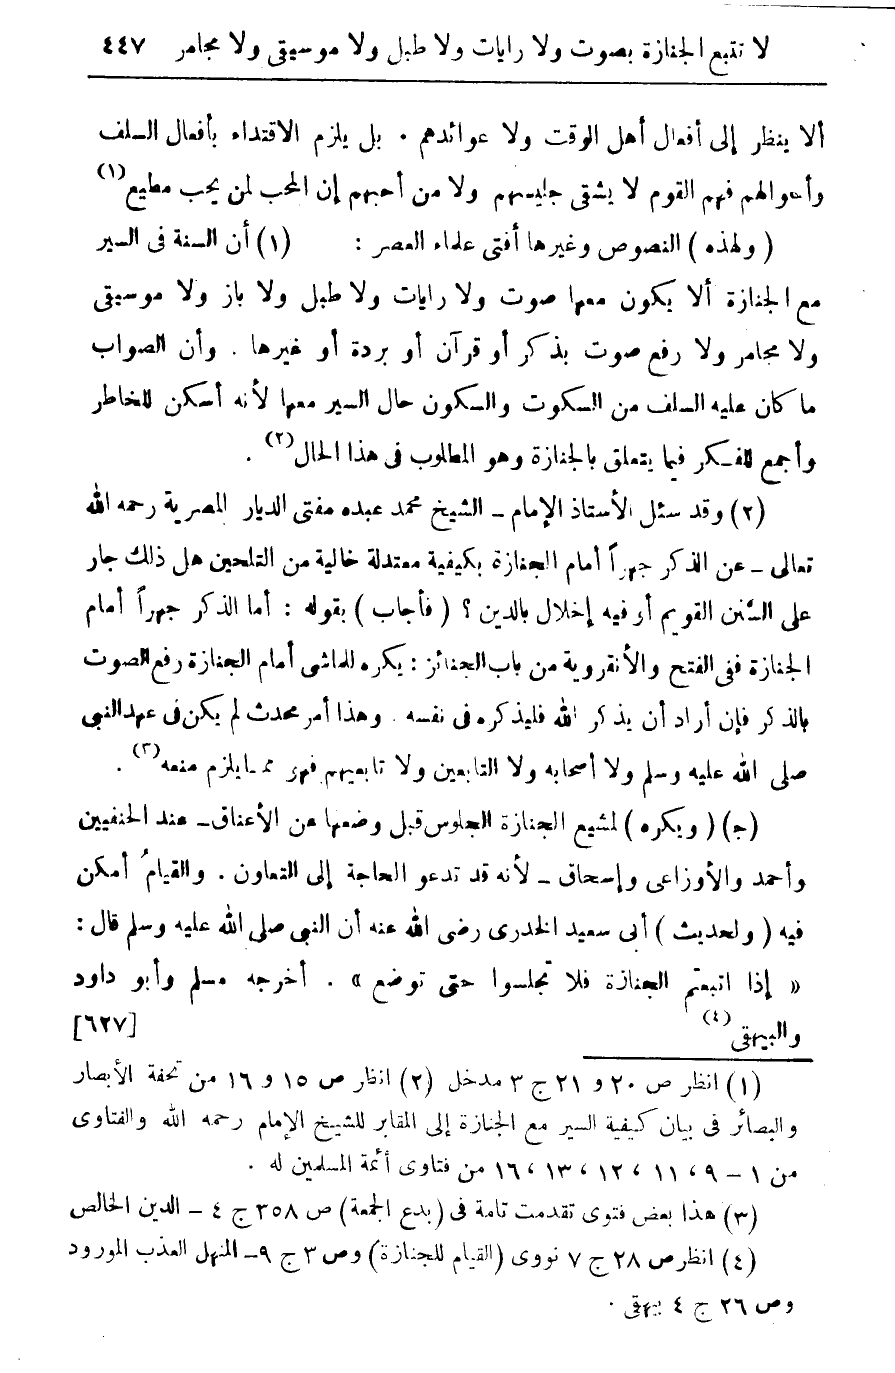 لا تتبع الجنازة بصوت ولا رايات ولا طبل ولا موسيقى ولا مجامر ٤٤٧
ألا ينظر إلى أفعال أهل الوقت ولا عوائدهم . بل يلزم الاقتداء بأفعال السلف
وأحوالهم فهم القوم لا يشقى جليسهم ولا من أحبهم إن المحب لمن يحب مطيع (١)
( ولهذه ) النصوص وغيرها أفتى علماء العصر : (١) أن السنة فى السير
مع الجنازة ألا يكون معها صوت ولا رايات ولا طبل ولا باز ولا موسيقى
ولا مجامر ولا رفع صوت بذكر أو قرآن أو بردة أو غيرها . وأن الصواب
ما كان عليه السلف من السكوت والسكون حال السير معها لأنه أسكن للخاطر
وأجمع للفكر فيما يتعلق بالجنازة وهو المطلوب فى هذا الحال (٢) .
(٢) وقد سئل الأستاذ الإمام ــ الشيخ محمد عبده مفتى الديار المصرية رحمه الله
تعالى ــ عن الذكر جهراً أمام الجنازة بكيفية معتدلة خالية من التلحين هل ذلك جار
على السَّنن القويم أو فيه إخلال بالدين ؟ ( فأجاب ) بقوله : أما الذكر جهراً أمام
الجنازة ففى الفتح والأنقروية من باب الجنائز : يكره للماشى أمام الجنازة رفع الصوت
بالذكر فإن أراد أن يذكر الله فليذكره فى نفسه . وهذا أمر محدث لم يكن فى عهد النبى
صلى الله عليه وسلم ولا أصحابه ولا التابعين ولا تابعيهم فهو مما يلزم منعه (٣) .
(ج) ( ويكره ) لمشيع الجنازة الجلوس قبل وضعها عن الأعناق ــ عند الحنفيين
وأحمد والأوزاعى وإسحاق ــ لأنه قد تدعو الحاجة إلى التعاون . والقيامُ أمكن
فيه ( ولحديث ) أبى سعيد الخدرى رضى الله عنه أن النبى صلى الله عليه وسلم قال :
« إذا اتبعتم الجنازة فلا تجلسوا حتى توضع » . أخرجه مسلم وأبو داود
والبيهقى (٤) [٦٢٧]
(١) انظر ص ٢٠ و ٢١ ج ٣ مدخل (٢) انظر ص ١٥ و ١٦ من تحفة الأبصار
والبصائر فى بيان كيفية السير مع الجنازة إلى المقابر للشيخ الإمام رحمه الله والفتاوى
من ١ – ٩ ، ١١ ، ١٢ ، ١٣ ، ١٦ من فتاوى أئمة المسلمين له .
(٣) هذا بعض فتوى تقدمت تامة فى (بدع الجمعة) ص ٢٥٨ ج ٤ ــ الدين الخالص
(٤) انظر ص ٢٨ ج ٧ نووى (القيام للجنازة) وص ٣ ج ٩ ــ المنهل العذب المورود
وص ٢٦ ج ٤ بيهقى .